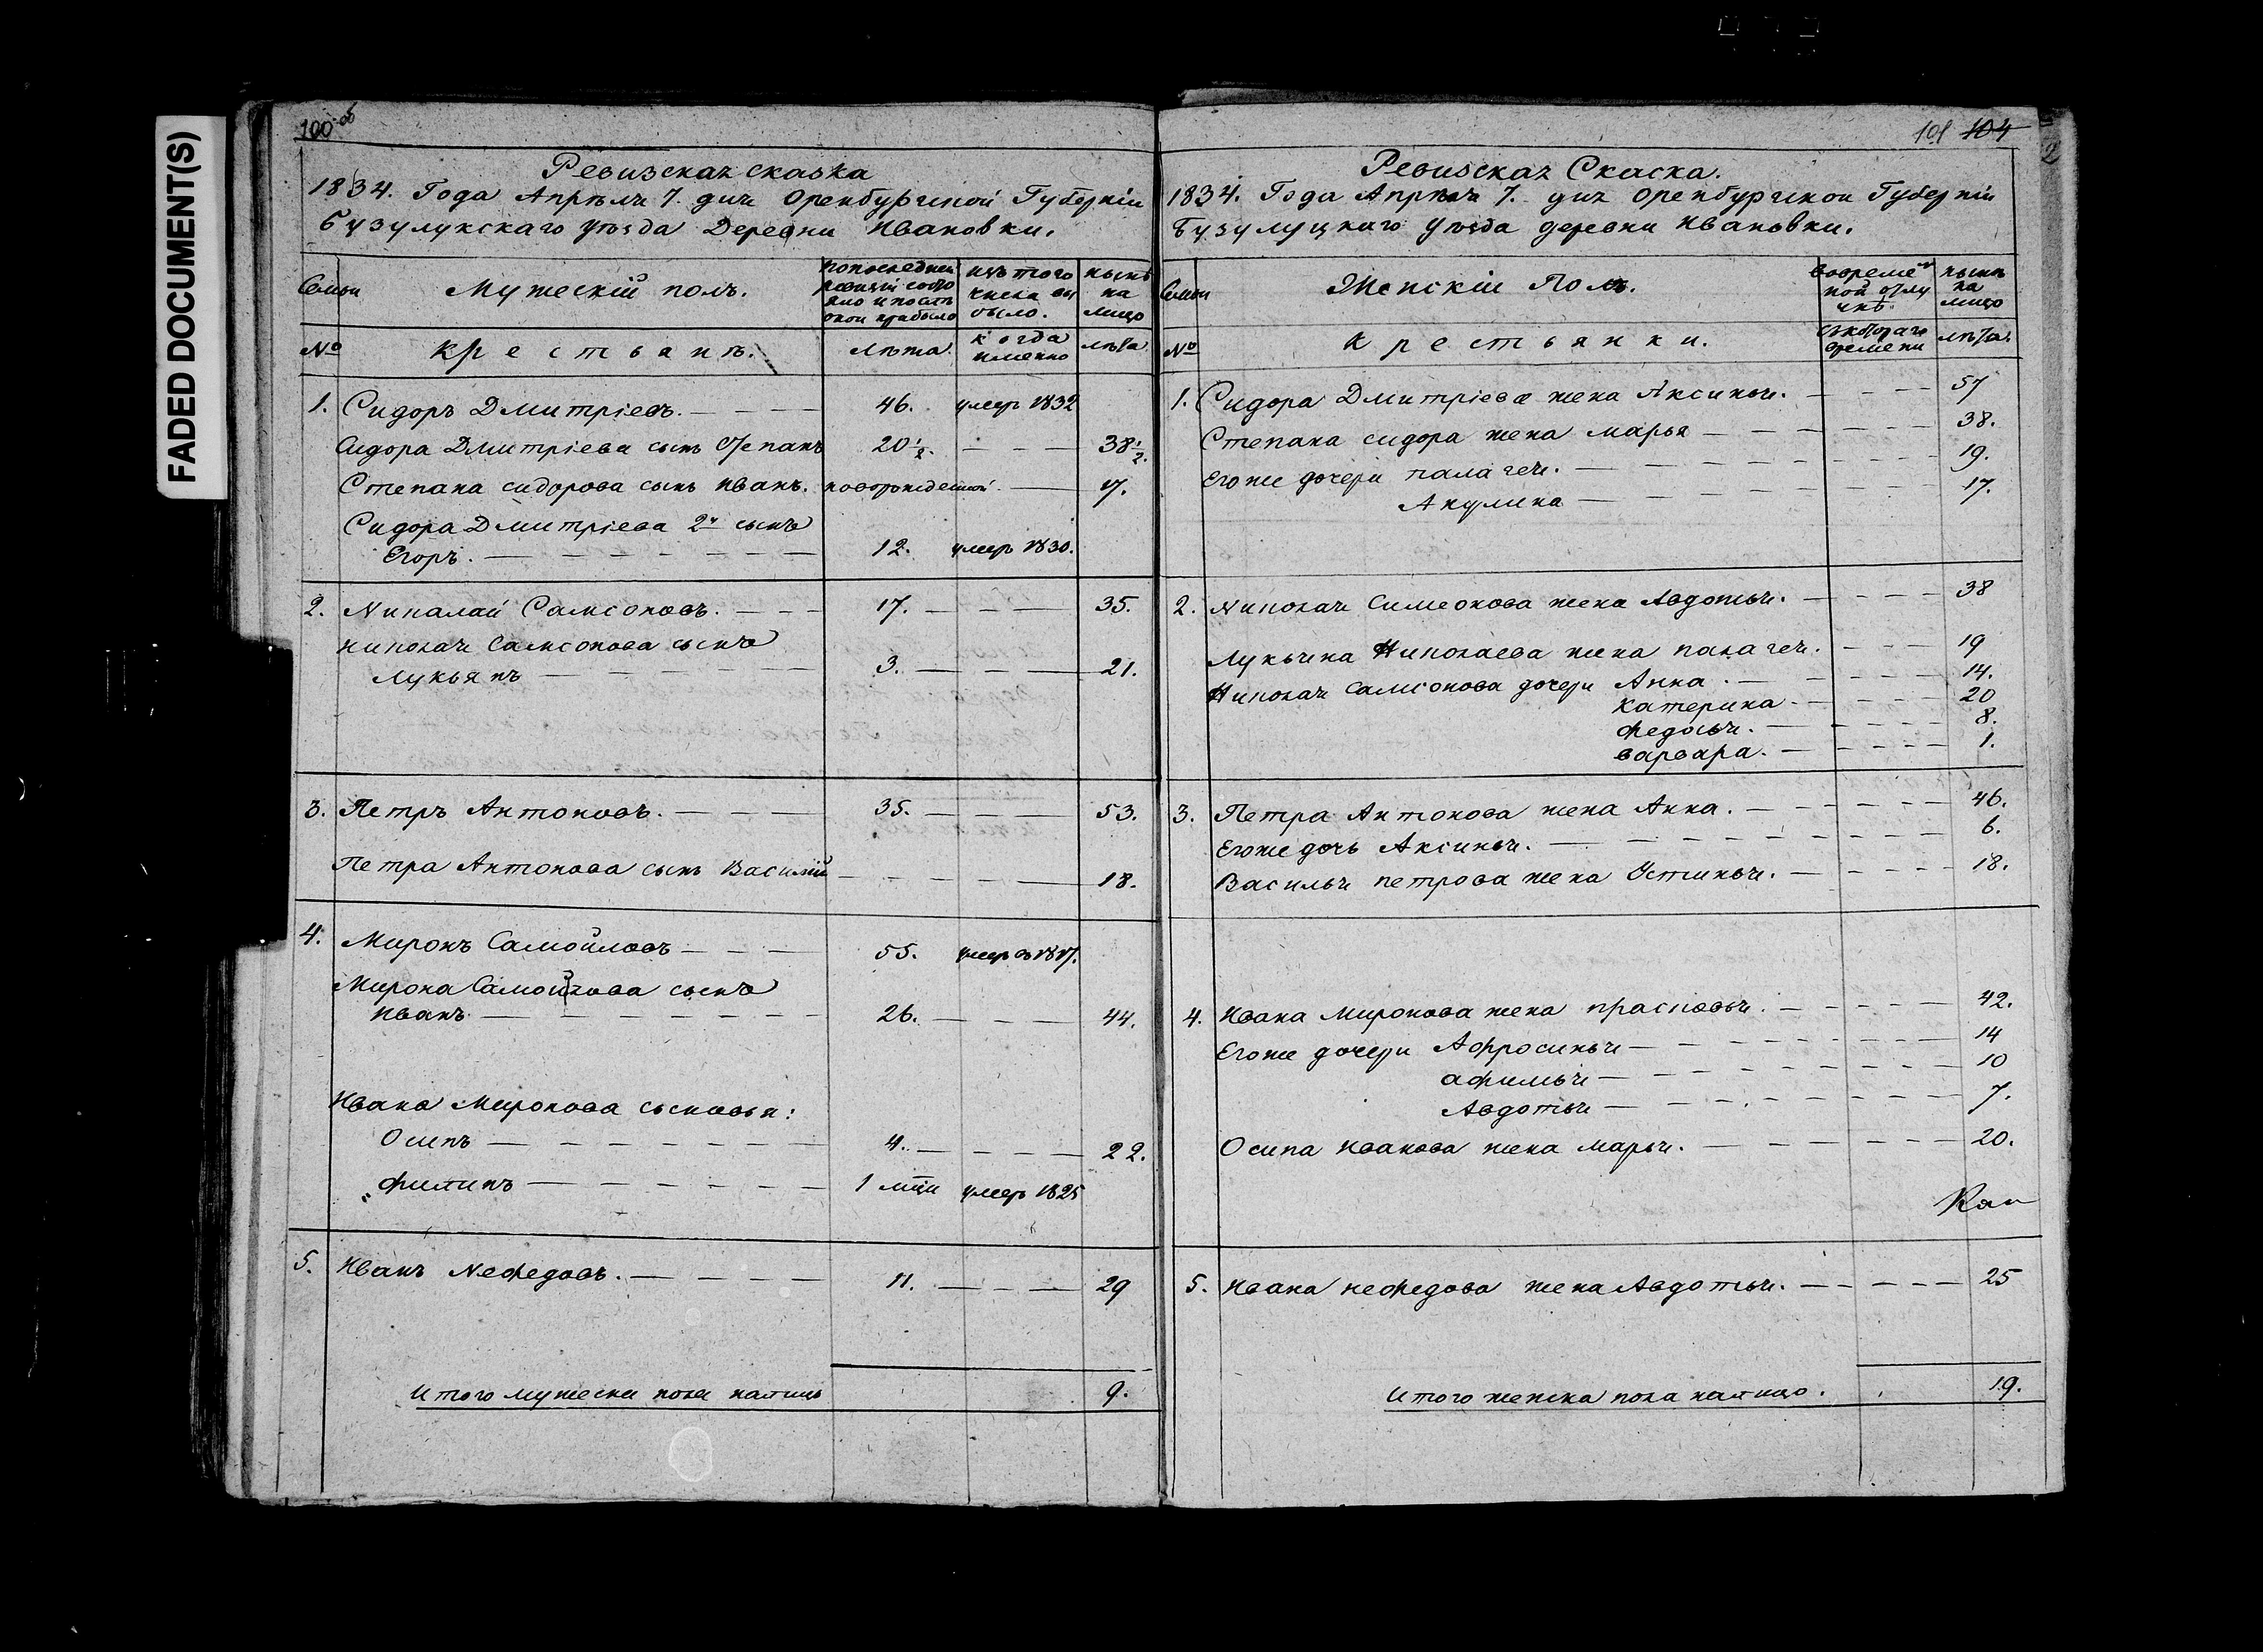 FADED DOCUMENT(S)
100 об
Ревизская сказка
1834. Года Апрѣля 7. дня Оренбургской Губерніи
Бузулукскаго уѣзда Деревни Ивановки.
Семьи
Мужескій полъ.
По последней ревизіи состояло и после оной прибыло
Изъ того числа выбыло.
Нынѣ на лицо
№
Крестьянѣ.
лѣта.
когда именно
лѣта
1. Сидоръ Дмитріевъ. — — — 46. умеръ 1832
Сидора Дмитріева сынъ Степанъ 20 1/2. — — — 38 1/2.
Степана сидорова сынъ иванъ. новорожденной. — 17.
Сидора Дмитріева 2й сынъ
Егоръ. — — — — — — 12. умеръ 1830.
2. Николай Самсоновъ. — — — 17. — — — 35.
николая Самсонова сынъ
Лукьянъ — — — — 3. — — — 21.
3. Петръ Антоновъ. — — — 35. — — — 53.
Петра Антонова сынъ Василій — — — — 18.
4. Миронъ Самойловъ — — — 55. умеръ въ 1817.
Мирона Самойлова сынъ
Иванъ. — — — — — — 26. — — — 44.
Ивана Миронова сыновья:
Осипъ — — — — — — 4. — — — — 22.
филипъ — — — — — — 1 мцы умеръ 1825
5. Иванъ Нефедовъ. — — — — 11. — — — 29
Итого мужеска пола налицо 9.
101 104
2
Ревизская Скаска.
1834. Года Апрѣля 7. дня Оренбургской Губерніи
Бузулуцкаго Уѣзда деревни Ивановки.
Семьи
Женскій Полъ.
Во временной отлучкѣ.
нынѣ на лицо
№
Крестьянки.
съ котораго времени
лѣта.
1. Сидора Дмитріева жена Аксинья. — — — 57
Степана сидора жена марья — — — — — — 38.
Егоже дочери палагея. — — — — — — — 19.
Акулина — — — — — — — 17.
2. Николая Симеонова жена Авдотья. — — — — 38
Лукьяна Николаева жена палагея. — — — 19
Николая Самсонова дочери Анна. — — — — — 14.
катерина. — — — — 20
федосья. — — — — — 8.
варвара. — — — — — 1.
3. Петра Антонова жена Анна. — — — — — — 46.
Егоже дочь Аксинья. — — — — — — — — — 6.
Василья петрова жена Устинья. — — — — — 18.
4. Ивана Миронова жена прасковья. — — — — — 42.
Егоже дочери Афросинья — — — — — — — — 14
афимья — — — — — — — — 10
Авдотья — — — — — — — — 7.
Осипа Иванова жена марья. — — — — — — — 20.
5. Ивана нефедова жена Авдотья. — — — — — 25
Итого женска пола налицо. 19.